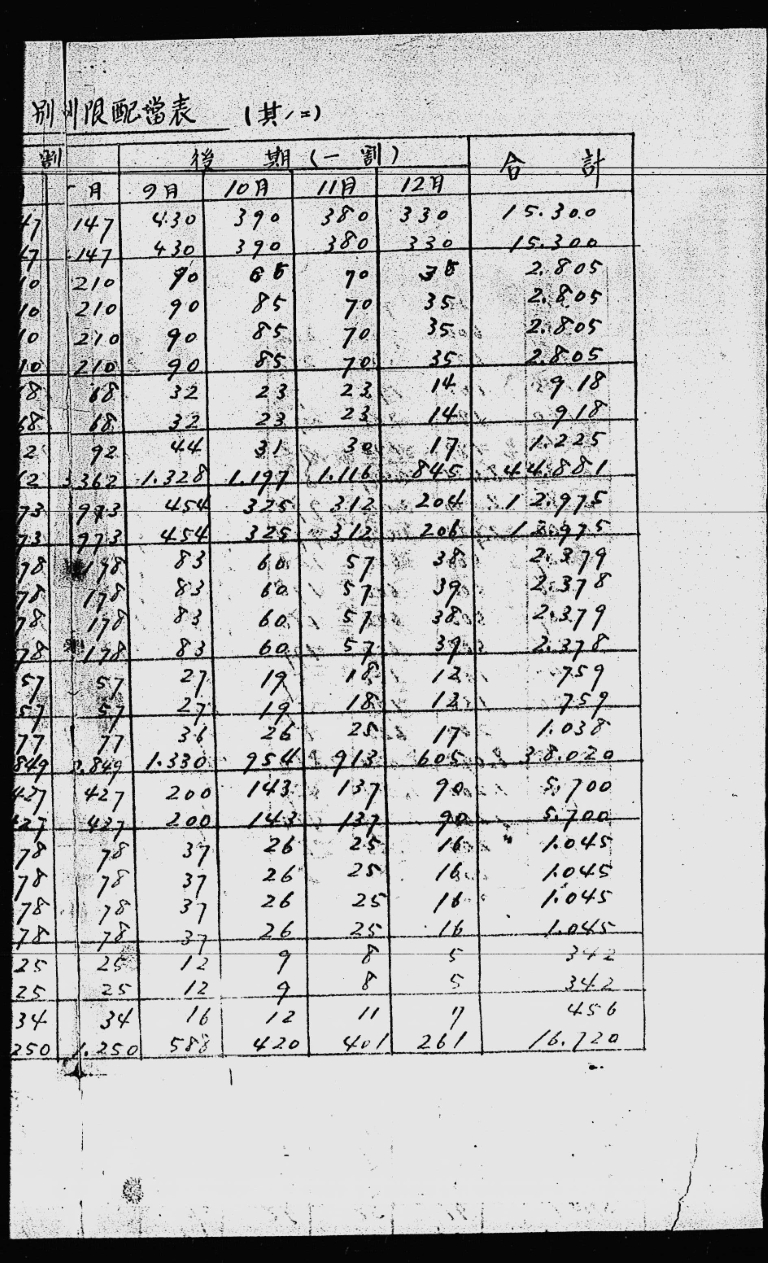 別月限配當表 (其ノ二)
割 後期(一割) 合計
月 9月 10月 11月 12月
47 147 430 390 380 330 15.300
47 147 430 390 380 330 15.300
10 210 90 70 2.805
10 210 90 85 70 35 2.805
10 210 90 85 70 35 2.805
10 210 90 85 70 35 2.805
68 68 32 23 23 14 918
68 68 32 23 23 14 918
2 92 44 31 30 17 1.225
62 3.362 1.328 1.197 1.116 845 44.881
73 973 454 325 312 204 12.975
73 973 454 325 312 206 12.975
78 178 83 60 57 38 2.379
78 178 83 60 57 39 2.378
78 178 83 60 57 38 2.379
78 178 83 60 57 39 2.378
57 57 27 19 18 12 759
57 57 27 19 18 12 759
77 77 36 26 25 17 1.038
849 2.849 1.330 954 913 605 38.020
427 427 200 143 137 90 5.700
427 427 200 143 137 90 5.700
78 78 37 26 25 16 1.045
78 78 37 26 25 16 1.045
78 78 37 26 25 16 1.045
78 78 37 26 25 16 1.045
25 25 12 9 8 5 342
25 25 12 9 8 5 342
34 34 16 12 11 7 456
250 1.250 588 420 401 261 16.720